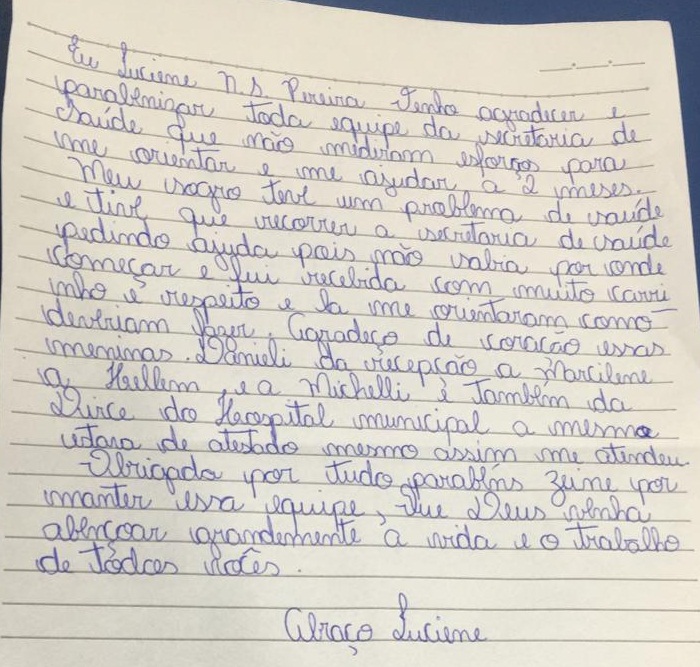 Eu Luciene n.s. Pereira Venho agradecer e
parabenizar toda equipe da secretaria de
saúde que não mediram esforços para
me orientar e me ajudar a 2 meses.
Meu sogro teve um problema de saúde
e tive que recorrer a secretaria de saúde
pedindo ajuda pois não sabia por onde
começar e fui recebida com muito cari
inho e respeito e la me orientaram como
deveriam fazer. Agradeço de coração essas
meninas. Danieli da recepção a Marcilene
a Hellem, e a Michelli e também da
Dirce do Hospital municipal a mesma
estava de atestado mesmo assim me atendeu.
Obrigada por tudo parabéns Zeine por
manter essa equipe, Que Deus venha
abençoar grandemente a vida e o trabalho
de tôdos vocês.
Abraço Luciene